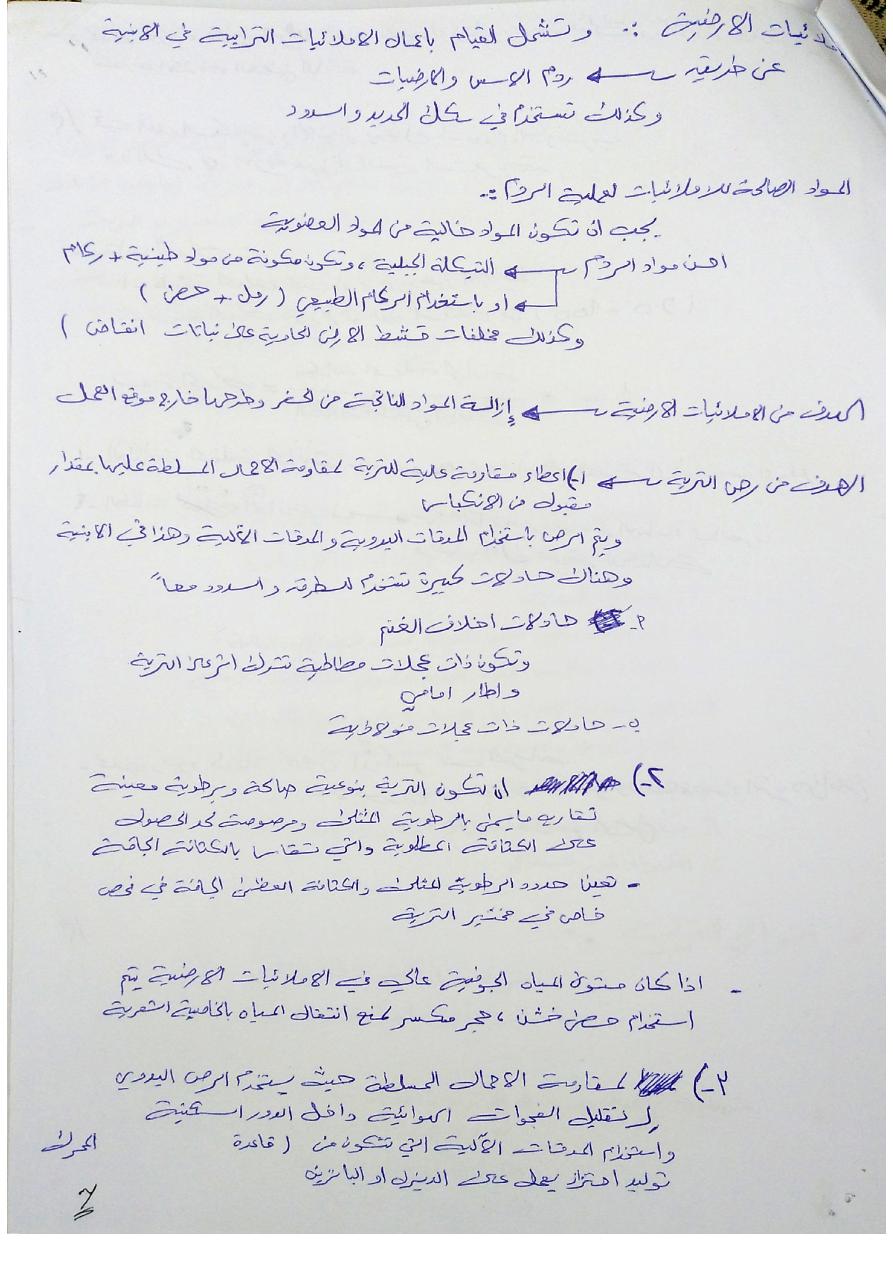 ملائيات الارضية :. وتشمل القيام باعمال الاملائيات الترابية في الابنية
عن طريق ← ردم الاسس والارضيات
وكذلك تستخدم في سكك الحديد والسدود
المواد الصالحة للاملائيات لعملية الردم :.
يجب ان تكون المواد خالية من المواد العضوية
احسن مواد الردم ← التيكلة الجبلية ، وتكون مكونة من مواد طينية + ركام
← او باستخدام الركام الطبيعي ( رمل + حصى )
وكذلك مخلفات قشط الارض الحاوية على نباتات انقاض )
الهدف من الاملائيات الارضية ← إزالة المواد الناتجة من الحفر وطرحها خارج موقع العمل
الهدف من رص التربة ← ١-) اعطاء مقاومة عالية للتربة لمقاومة الاحمال المسلطة عليها بمقدار
مقبول من الانكباس
ويتم الرص باستخدام المدقات اليدوية والمدقات الآلية وهذا في الابنية
وهناك حادلات كبيرة تستخدم للطرق والسدود معاً
٢- حادلات اضلاف الغنم
وتكون ذات عجلات مطاطية تترك اثر على التربة
واطار امامي
ب- حادلات ذات عجلات فولاذية
٢-) ان تكون التربة بنوعية صالحة وبرطوبة معينة
تقارب مايسمى بالرطوبة المثلى ومرصوصة لحد الحصول
على الكثافة المطلوبة والتي تقاس بالكثافة الجافة
- تعين حدود الرطوبة المثلى والكثافة العظمى الجافة في فحص
خاص في مختبر التربة
- اذا كان مستوى المياه الجوفية عالي في الاملائيات الارضية يتم
استخدام حصى خشن ، حجر مكسر لمنع انتقال المياه بالخاصية الشعرية
٣-) لمقاومة الاحمال المسلطة حيث يستخدم الرص اليدوي
لتقليل الفجوات الهوائية داخل الدور السكنية
واستخدام المدقات الآلية التي تتكون من ( قاعدة المحرك
توليد اهتزاز يعمل على الديزل او البانزين